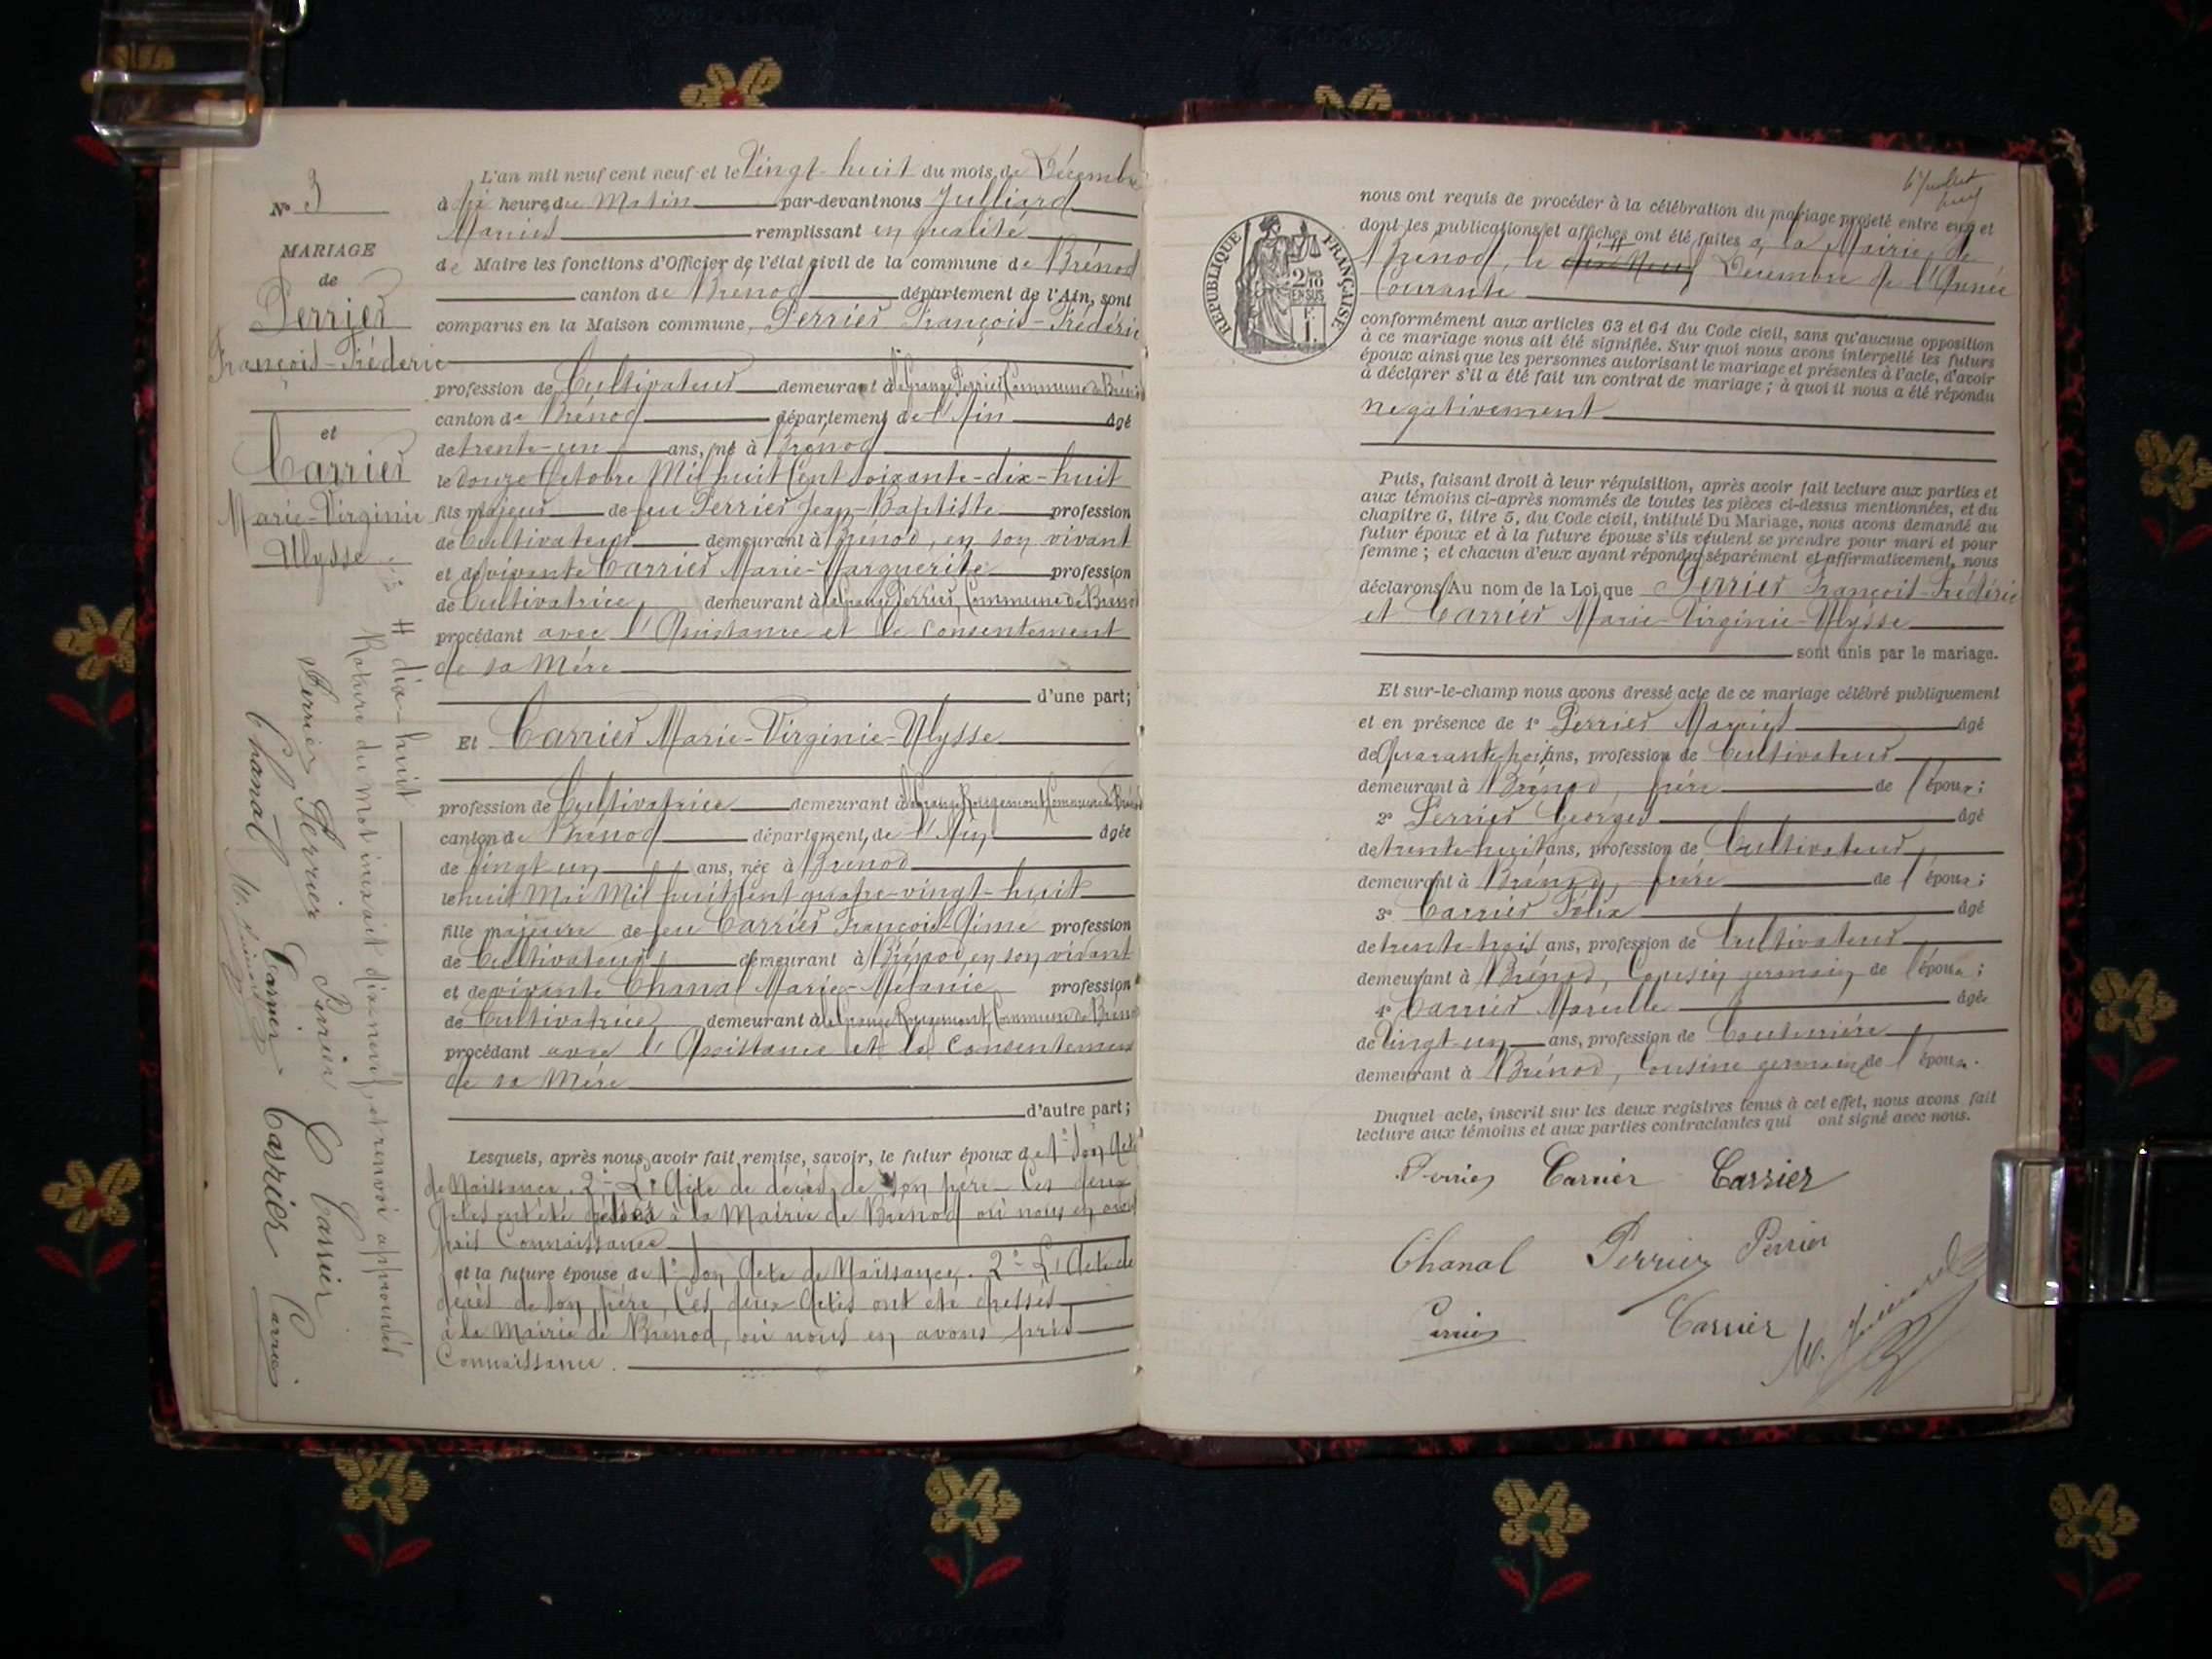 N° 3
MARIAGE
de
Perrier
François-Fréderic
et
Carrier
Marie-Virginie
Ulysse
L'an mil neuf cent neuf et le Vingt-huit du mois de Décembre
à dix heures du Matin par-devant nous Julliard
Marius remplissant en qualité
de Maire les fonctions d'Officier de l'état civil de la commune de Brénod
canton de Brénod département de l'Ain, sont
comparus en la Maison commune, Perrier François-Frédéric
profession de Cultivateur demeurant à la Grange Perrier, Commune de Brénod
canton de Brénod département de l'Ain âgé
de trente-un ans, né à Brénod
le douze Octobre Mil huit Cent soixante-dix-huit
fils majeur de feu Perrier Jean-Baptiste profession
de Cultivateur demeurant à Brénod, en son vivant
et de vivante Carrier Marie-Marguerite profession
de Cultivatrice, demeurant à la Grange Perrier, Commune de Brénod
procédant avec l'Assistance et le Consentement
de sa Mère
d'une part;
Et Carrier Marie-Virginie-Ulysse
profession de Cultivatrice demeurant à la Grange Rougemont Commune de Brénod
canton de Brénod département de l'Ain âgée
de Vingt-un ans, née à Brénod
le huit Mai Mil huit Cent quatre-vingt-huit
fille majeure de feu Carrier François-Aimé profession
de Cultivateur demeurant à Brénod, en son vivant
et de vivante Chanal Marie-Mélanie profession
de Cultivatrice, demeurant à la Grange Rougemont, Commune de Brénod
procédant avec l'Assistance et le Consentement
de sa Mère
d'autre part;
Lesquels, après nous avoir fait remise, savoir, le futur époux de 1° Son Acte
de Naissance. 2° L'Acte de décès de son père. Ces deux
Actes ont été dressés à la Mairie de Brénod où nous en avons
pris Connaissance
et la future épouse de 1° Son Acte de Naissance. 2° L'Acte de
décès de son père, Ces deux Actes ont été dressés
à la Mairie de Brénod, où nous en avons pris
Connaissance.
# dix-huit
Rature du mot inexact dix-neuf, et renvoi approuvés
Perrier Perrier Perrier C Carrier
Chanal Carrier Carrier Carrier
RÉPUBLIQUE FRANÇAISE
2/10
EN SUS
1 F.
nous ont requis de procéder à la célébration du mariage projeté entre eux et
dont les publications et affiches ont été faites à la Mairie de
Brénod, le # dix-Neuf Décembre de l'Année
Courante
conformément aux articles 63 et 64 du Code civil, sans qu'aucune opposition
à ce mariage nous ait été signifiée. Sur quoi nous avons interpellé les futurs
époux ainsi que les personnes autorisant le mariage et présentes à l'acte, d'avoir
à déclarer s'il a été fait un contrat de mariage; à quoi il nous a été répondu
négativement
Puis, faisant droit à leur réquisition, après avoir fait lecture aux parties et
aux témoins ci-après nommés de toutes les pièces ci-dessus mentionnées, et du
chapitre 6, titre 5, du Code civil, intitulé Du Mariage, nous avons demandé au
futur époux et à la future épouse s'ils veulent se prendre pour mari et pour
femme; et chacun d'eux ayant répondu séparément et affirmativement, nous
déclarons Au nom de la Loi que Perrier François-Frédéric
et Carrier Marie-Virginie-Ulysse
sont unis par le mariage.
Et sur-le-champ nous avons dressé acte de ce mariage célébré publiquement
et en présence de 1° Perrier Marius âgé
de Quarante trois ans, profession de Cultivateur
demeurant à Brénod, frère de l'époux;
2° Perrier Georges âgé
de trente-huit ans, profession de Cultivateur
demeurant à Brénod, frère de l'époux;
3° Carrier Félix âgé
de trente-trois ans, profession de Cultivateur
demeurant à Brénod, Cousin germain de l'épouse;
4° Carrier Marcelle âgée
de Vingt-un ans, profession de Couturière
demeurant à Brénod, Cousine germaine de l'épouse.
Duquel acte, inscrit sur les deux registres tenus à cet effet, nous avons fait
lecture aux témoins et aux parties contractantes qui ont signé avec nous.
Perrier Carrier Carrier
Chanal Perrier Perrier
Perrier Carrier